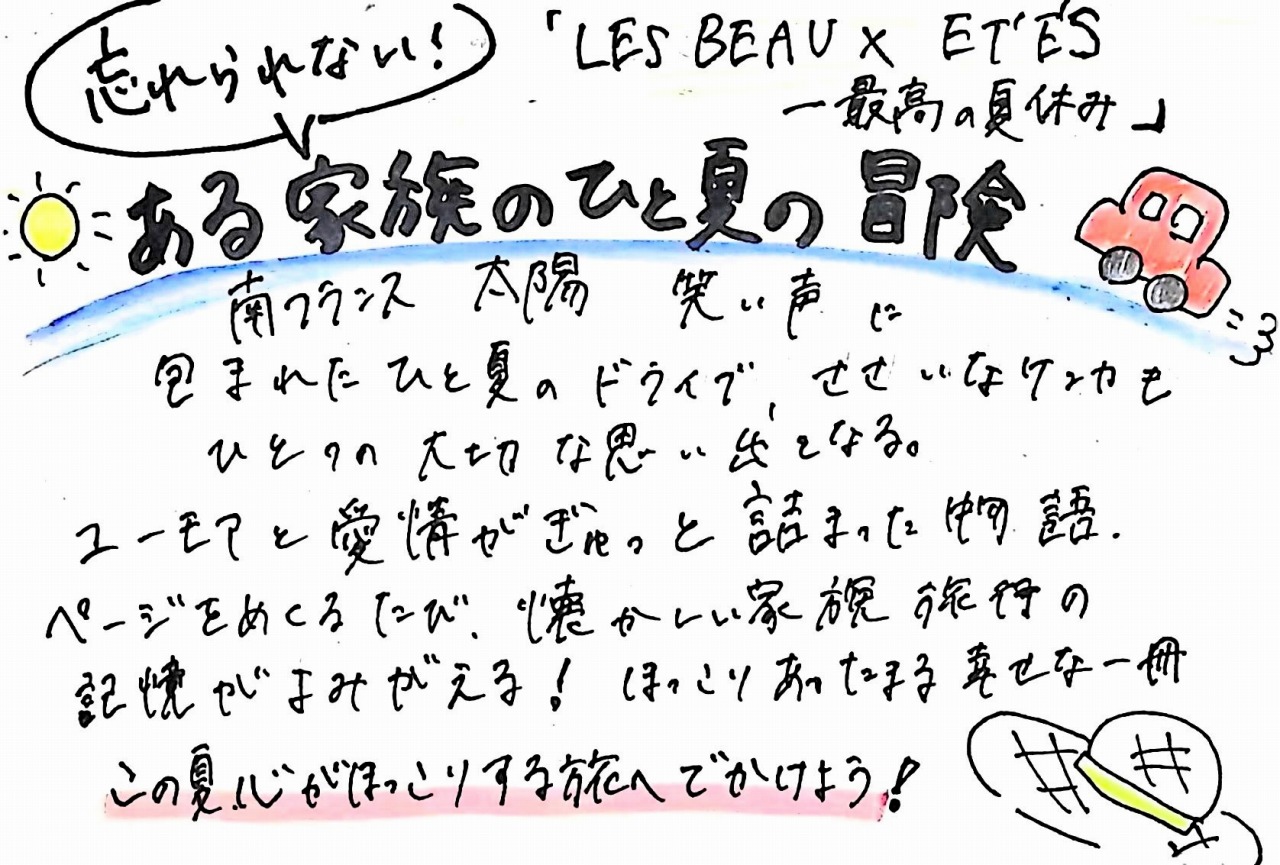 忘れられない!
「LES BEAUX ETÉS
ー最高の夏休み」
ある家族のひと夏の冒険
南フランス 太陽 笑い声に
包まれたひと夏のドライブ、ささいなケンカも
ひとつの大切な思い出となる。
ユーモアと愛情がぎゅっと詰まった物語.
ページをめくるたび、懐かしい家族旅行の
記憶がよみがえる! ほっこりあったまる幸せな一冊
この夏、心がほっこりする旅へでかけよう!